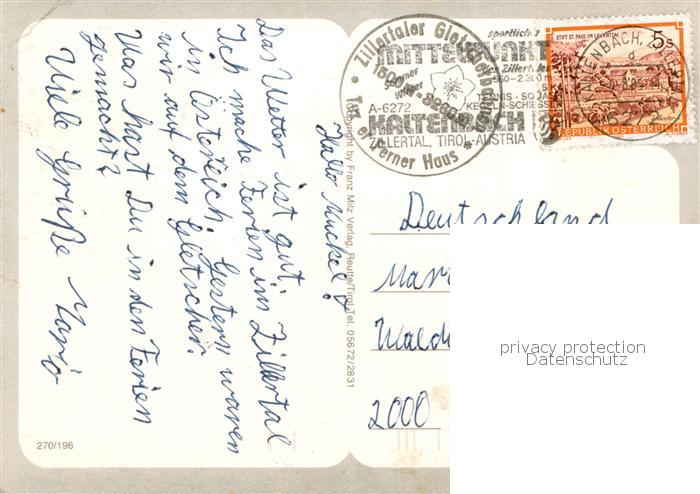 Hallo Muckel!
Das Wetter ist gut.
Ich mache Ferien im Zillertal
in Östereich. Gestern waren
wir auf dem Gletscher.
Was hast Du in den Ferien
gemacht?
Viele Grüße Mario
270/196
Copyright by Franz Milz Verlag, Reutte/Tirol, Tel. 05672/2831
Zillertaler Gletscherbahn
Tuxer Ferner Haus
sportlicher
MITTELPUNKT
des Zillertales
A-6272
KEGELN-SCHIESSEN
KALTENBACH
ZILLERTAL, TIROL-AUSTRIA
STIFT ST. PAUL IM LAVANTTAL
5s
REPUBLIK ÖSTERREICH
KALTENBACH, ZILLERTAL
d
6272
Deutschland
2000
privacy protection
Datenschutz